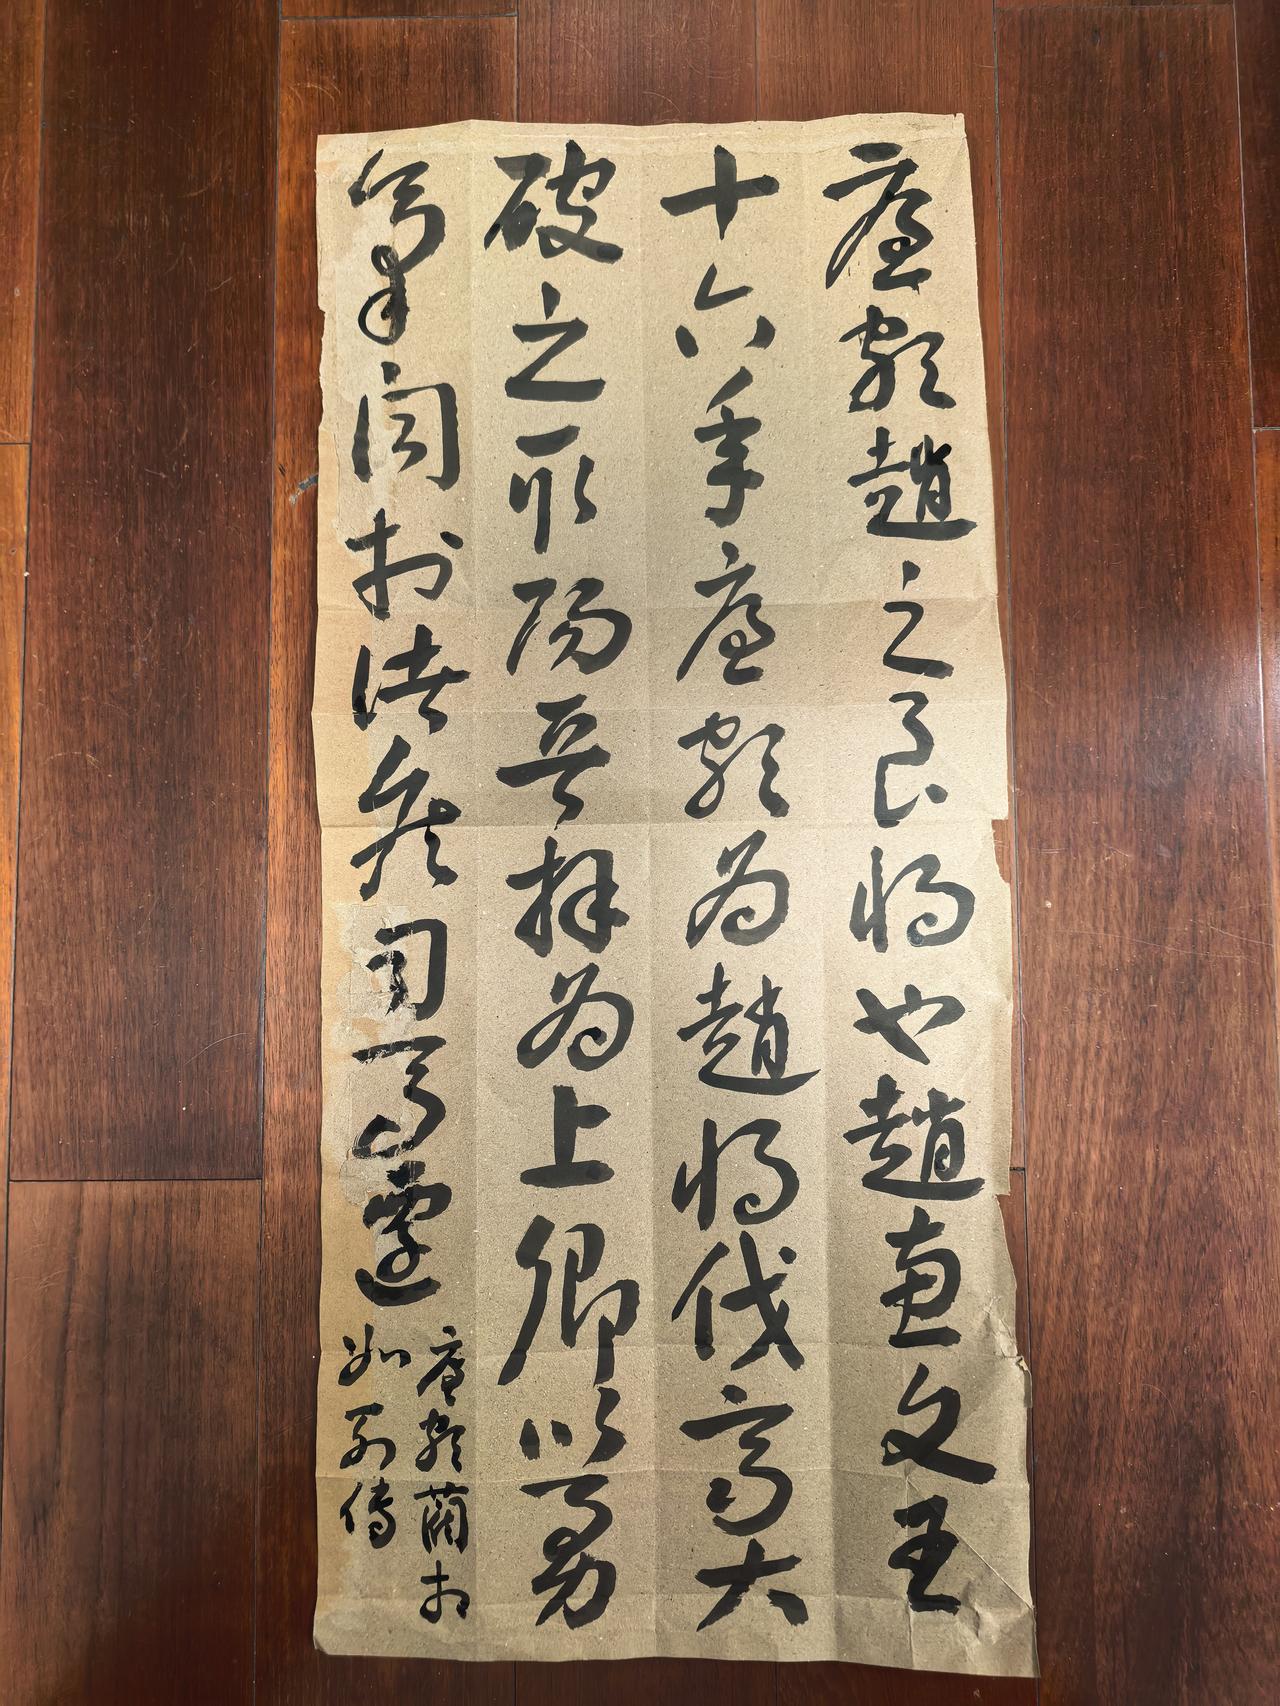 廉頗趙之良將也趙惠文王
十六年廉頗為趙將伐齊大
破之取陽晉拜為上卿以勇
氣聞於諸侯司馬遷
廉頗藺相
如列傳